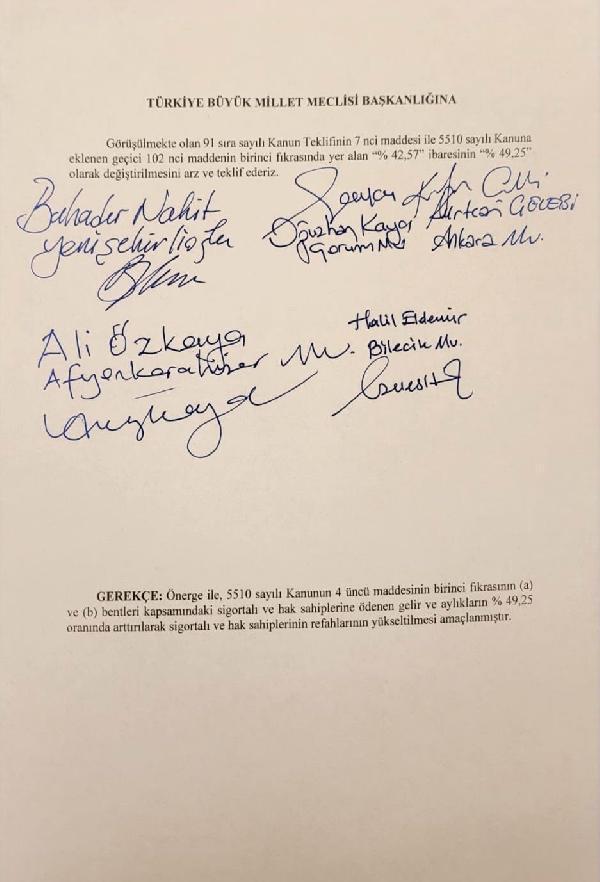 TÜRKİYE BÜYÜK MİLLET MECLİSİ BAŞKANLIĞINA
Görüşülmekte olan 91 sıra sayılı Kanun Teklifinin 7 nci maddesi ile 5510 sayılı Kanuna
eklenen geçici 102 nci maddenin birinci fıkrasında yer alan “% 42,57” ibaresinin “% 49,25”
olarak değiştirilmesini arz ve teklif ederiz.
Bahadır Nahit
Yenişehirlioğlu
Oğuzhan Kaya
Çorum Mv.
ÇELEBİ
Ankara Mv.
Ali Özkaya
Afyonkarahisar Mv.
Halil Eldemir
Bilecik Mv.
GEREKÇE: Önerge ile, 5510 sayılı Kanunun 4 üncü maddesinin birinci fıkrasının (a)
ve (b) bentleri kapsamındaki sigortalı ve hak sahiplerine ödenen gelir ve aylıkların % 49,25
oranında arttırılarak sigortalı ve hak sahiplerinin refahlarının yükseltilmesi amaçlanmıştır.